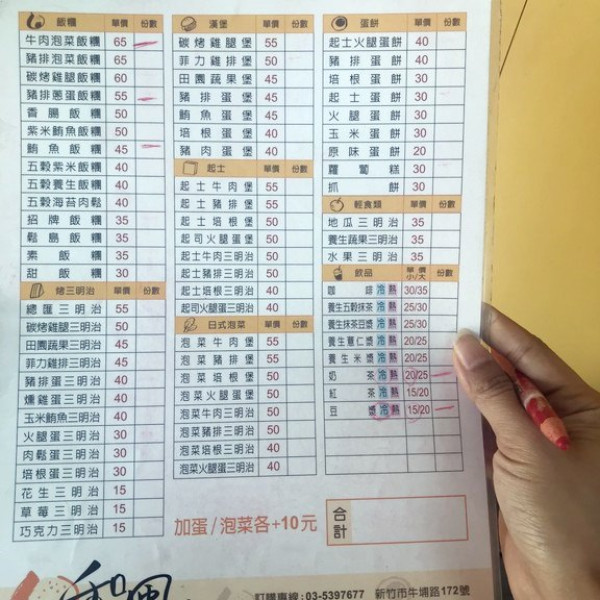 飯糰 單價 份數
牛肉泡菜飯糰 65
豬排泡菜飯糰 65
碳烤雞腿飯糰 60
豬排蔥蛋飯糰 55
香腸飯糰 50
紫米鮪魚飯糰 50
鮪魚飯糰 45
五穀紫米飯糰 40
五穀養生飯糰 40
五穀海苔肉鬆 40
招牌飯糰 35
鬆島飯糰 35
素飯糰 30
甜飯糰 30
烤三明治 單價 份數
總匯三明治 55
碳烤雞三明治 50
田園蔬果三明治 45
菲力雞三明治 45
豬排蛋三明治 40
燻雞蛋三明治 40
玉米鮪魚三明治 40
火腿蛋三明治 30
肉鬆蛋三明治 30
培根蛋三明治 30
花生三明治 15
草莓三明治 15
巧克力三明治 15
漢堡 單價 份數
碳烤雞腿堡 55
菲力雞排堡 50
田園蔬果堡 45
豬排蛋堡 45
鮪魚蛋堡 45
培根蛋堡 40
豬肉蛋堡 40
起士 單價 份數
起士牛肉堡 55
起士豬排堡 55
起士培根堡 50
起司火腿蛋堡 50
起士牛肉三明治 50
起士豬排三明治 50
起士培根三明治 40
起司火腿三明治 40
日式泡菜 單價 份數
泡菜牛肉堡 55
泡菜豬排堡 55
泡菜培根堡 50
泡菜火腿蛋堡 50
泡菜牛肉三明治 50
泡菜豬排三明治 50
泡菜培根三明治 40
泡菜火腿蛋三明治 40
蛋餅 單價 份數
起士火腿蛋餅 40
豬排蛋餅 40
培根蛋餅 30
起士蛋餅 30
火腿蛋餅 30
玉米蛋餅 30
原味蛋餅 20
蘿蔔糕 30
抓餅 30
輕食類 單價 份數
地瓜三明治 35
養生蔬果三明治 35
水果三明治 35
飲品 單價 小/大 份數
咖啡 冷 熱 30/35
養生五穀抹茶 冷 熱 25/30
養生抹茶豆漿 冷 熱 25/30
養生薏仁漿 冷 熱 20/25
養生米漿 冷 熱 20/25
奶茶 冷 熱 20/25
紅茶 冷 熱 15/20
豆漿 冷 熱 15/20
加蛋/泡菜各+10元
合計
訂購專線:03-5397677 新竹市牛埔路172號